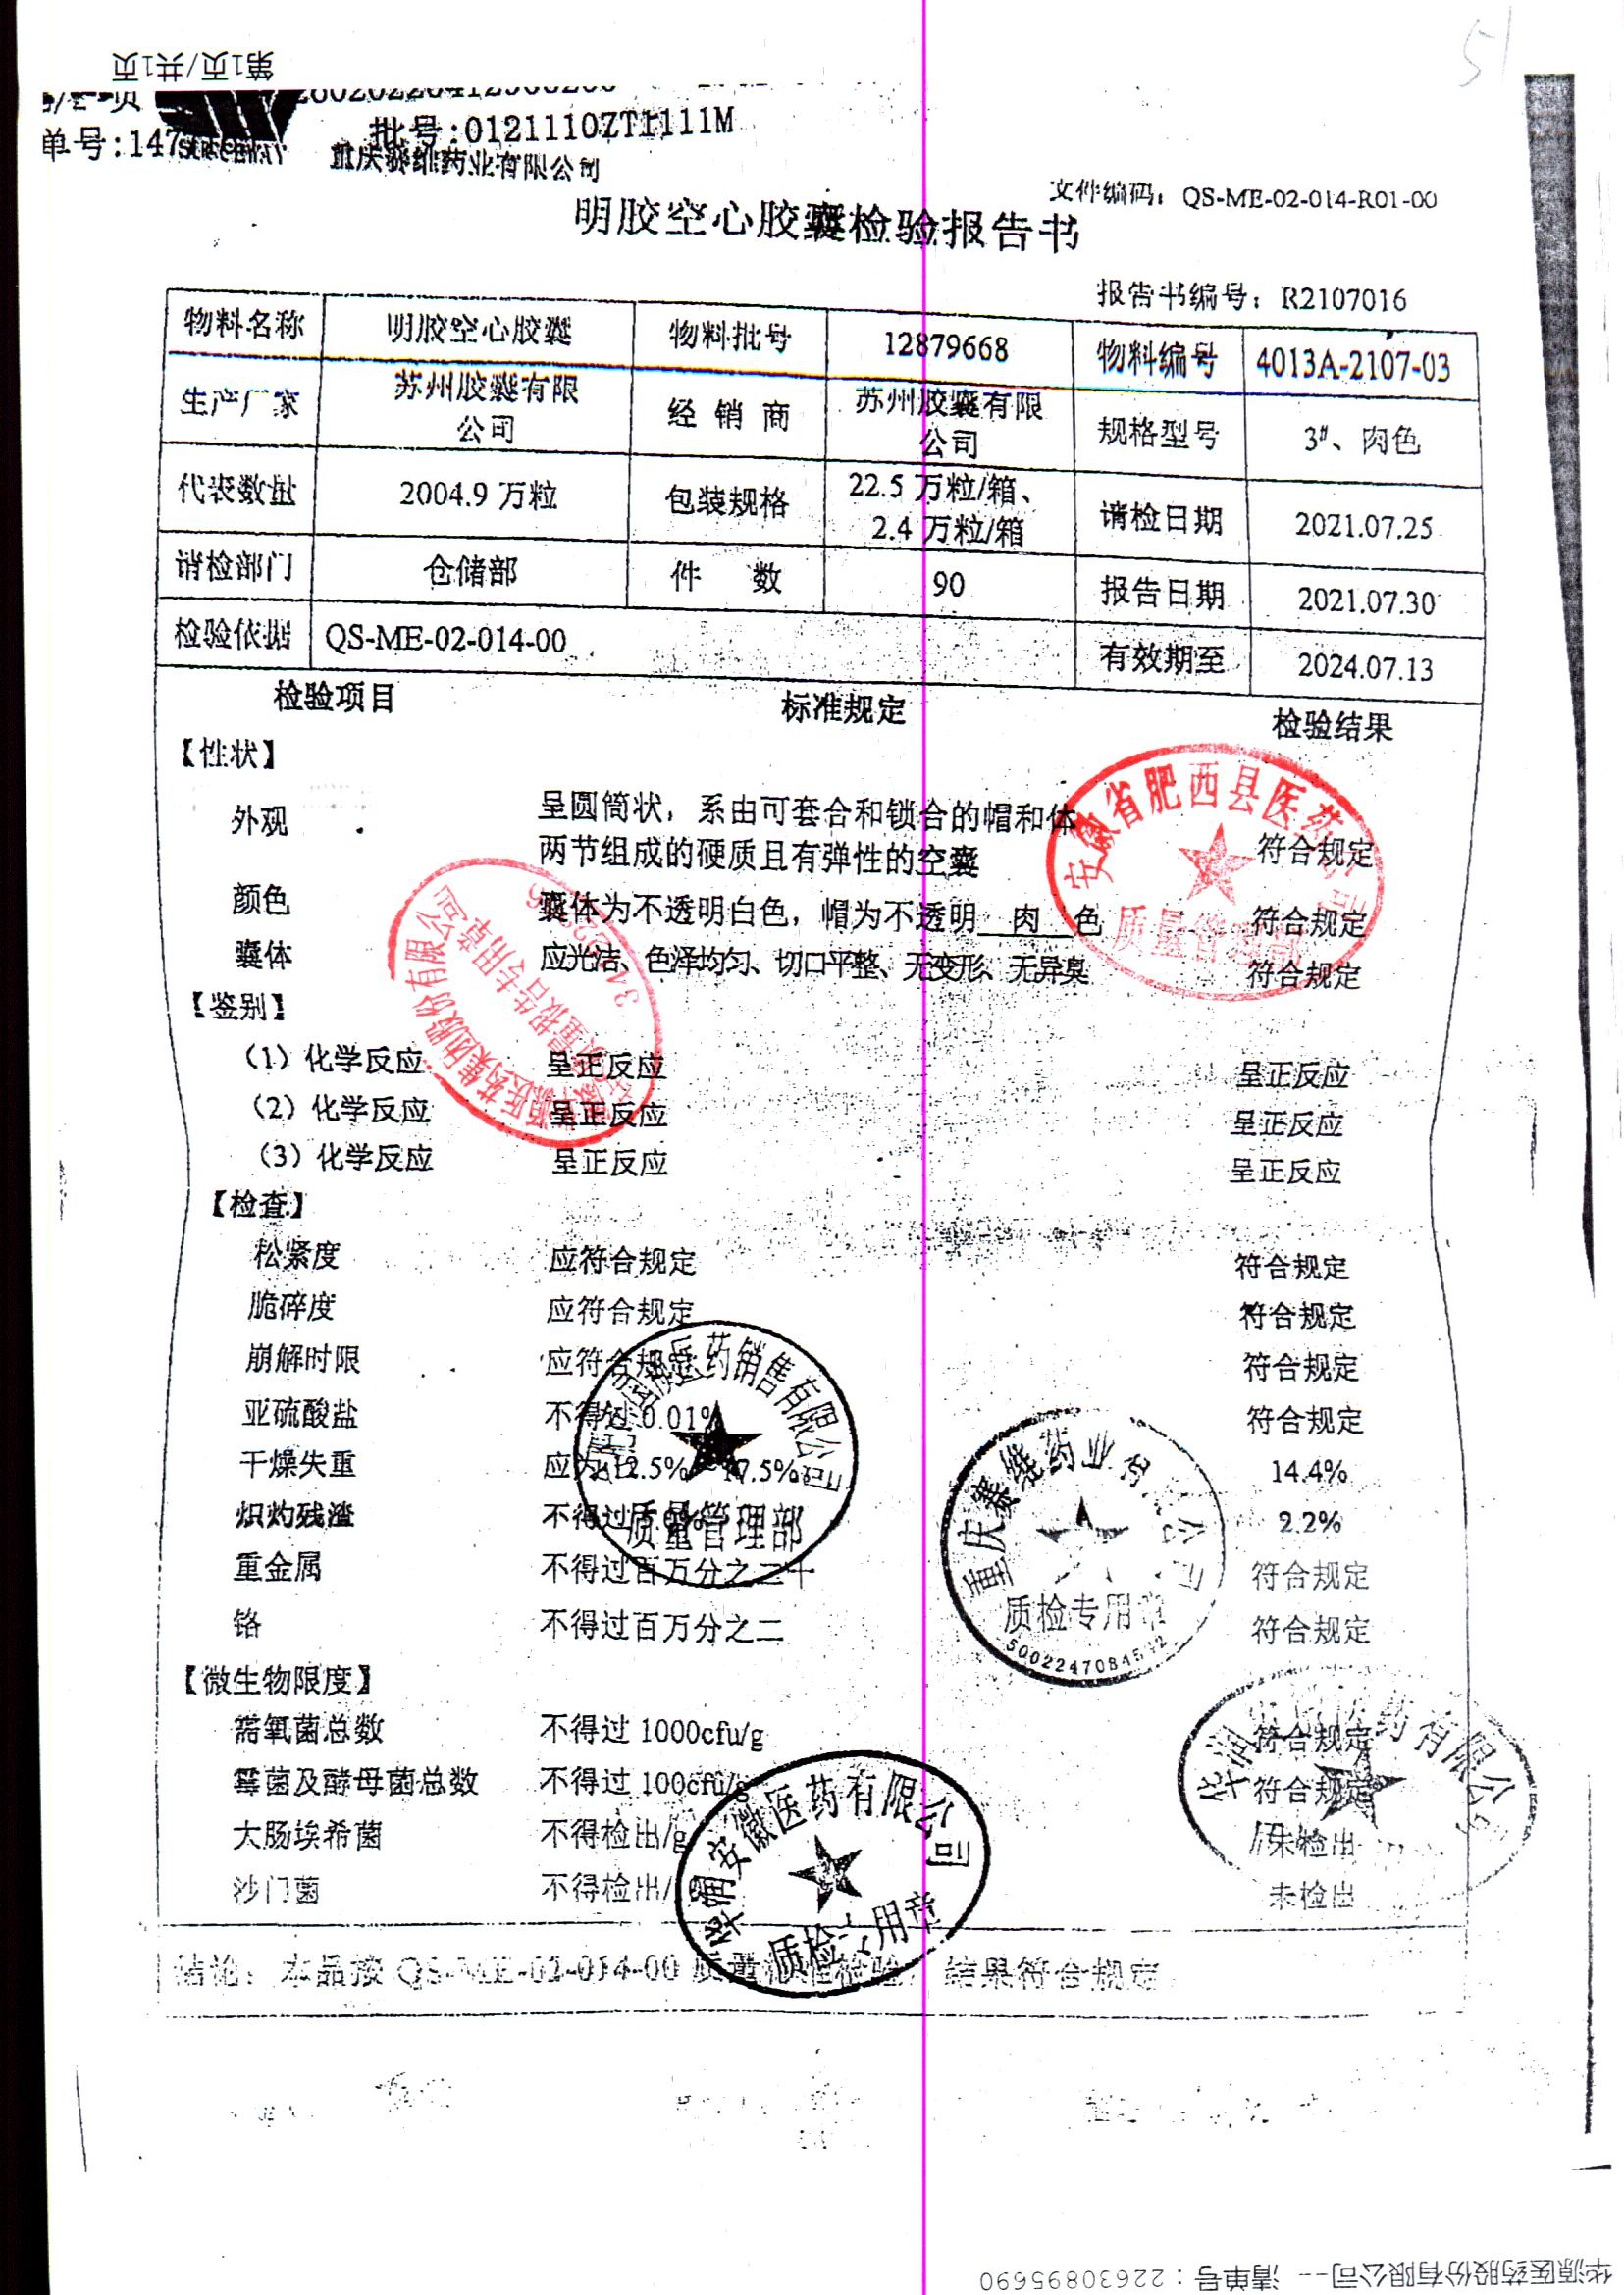 51
第1页/共1页
批号:0121110ZT1111M
单号:147
重庆赛维药业有限公司
文件编码：QS-ME-02-014-R01-00
明胶空心胶囊检验报告书
报告书编号：R2107016
物料名称 明胶空心胶囊 物料批号 12879668 物料编号 4013A-2107-03
生产厂家 苏州胶囊有限公司 经销商 苏州胶囊有限公司 规格型号 3#、肉色
代表数量 2004.9 万粒 包装规格 22.5 万粒/箱、2.4 万粒/箱 请检日期 2021.07.25
请检部门 仓储部 件数 90 报告日期 2021.07.30
检验依据 QS-ME-02-014-00 有效期至 2024.07.13
检验项目 标准规定 检验结果
【性状】
外观 呈圆筒状，系由可套合和锁合的帽和体
两节组成的硬质且有弹性的空囊 符合规定
颜色 囊体为不透明白色，帽为不透明 肉 色 符合规定
囊体 应光洁、色泽均匀、切口平整、无变形、无异臭 符合规定
【鉴别】
（1）化学反应 呈正反应 呈正反应
（2）化学反应 呈正反应 呈正反应
（3）化学反应 呈正反应 呈正反应
【检查】
松紧度 应符合规定 符合规定
脆碎度 应符合规定 符合规定
崩解时限 应符合规定 符合规定
亚硫酸盐 不得过 0.01% 符合规定
干燥失重 应为12.5%~17.5% 14.4%
炽灼残渣 不得过 2.2%
重金属 不得过百万分之二十 符合规定
铬 不得过百万分之二 符合规定
【微生物限度】
需氧菌总数 不得过 1000cfu/g 符合规定
霉菌及酵母菌总数 不得过 100cfu/g 符合规定
大肠埃希菌 不得检出/g 未检出
沙门菌 不得检出/ 未检出
结论：本品按 QS-ME-02-014-00 质量标准检验，结果符合规定
安徽省肥西县医药公司
质量管理部
华源医药集团股份有限公司
质量报告专用章
医药销售有限公司
质量管理部
重庆赛维药业有限公司
质检专用章
华润安徽医药有限公司
质检专用章
医药有限公司
华源医药股份有限公司--- 清单号：22630895690